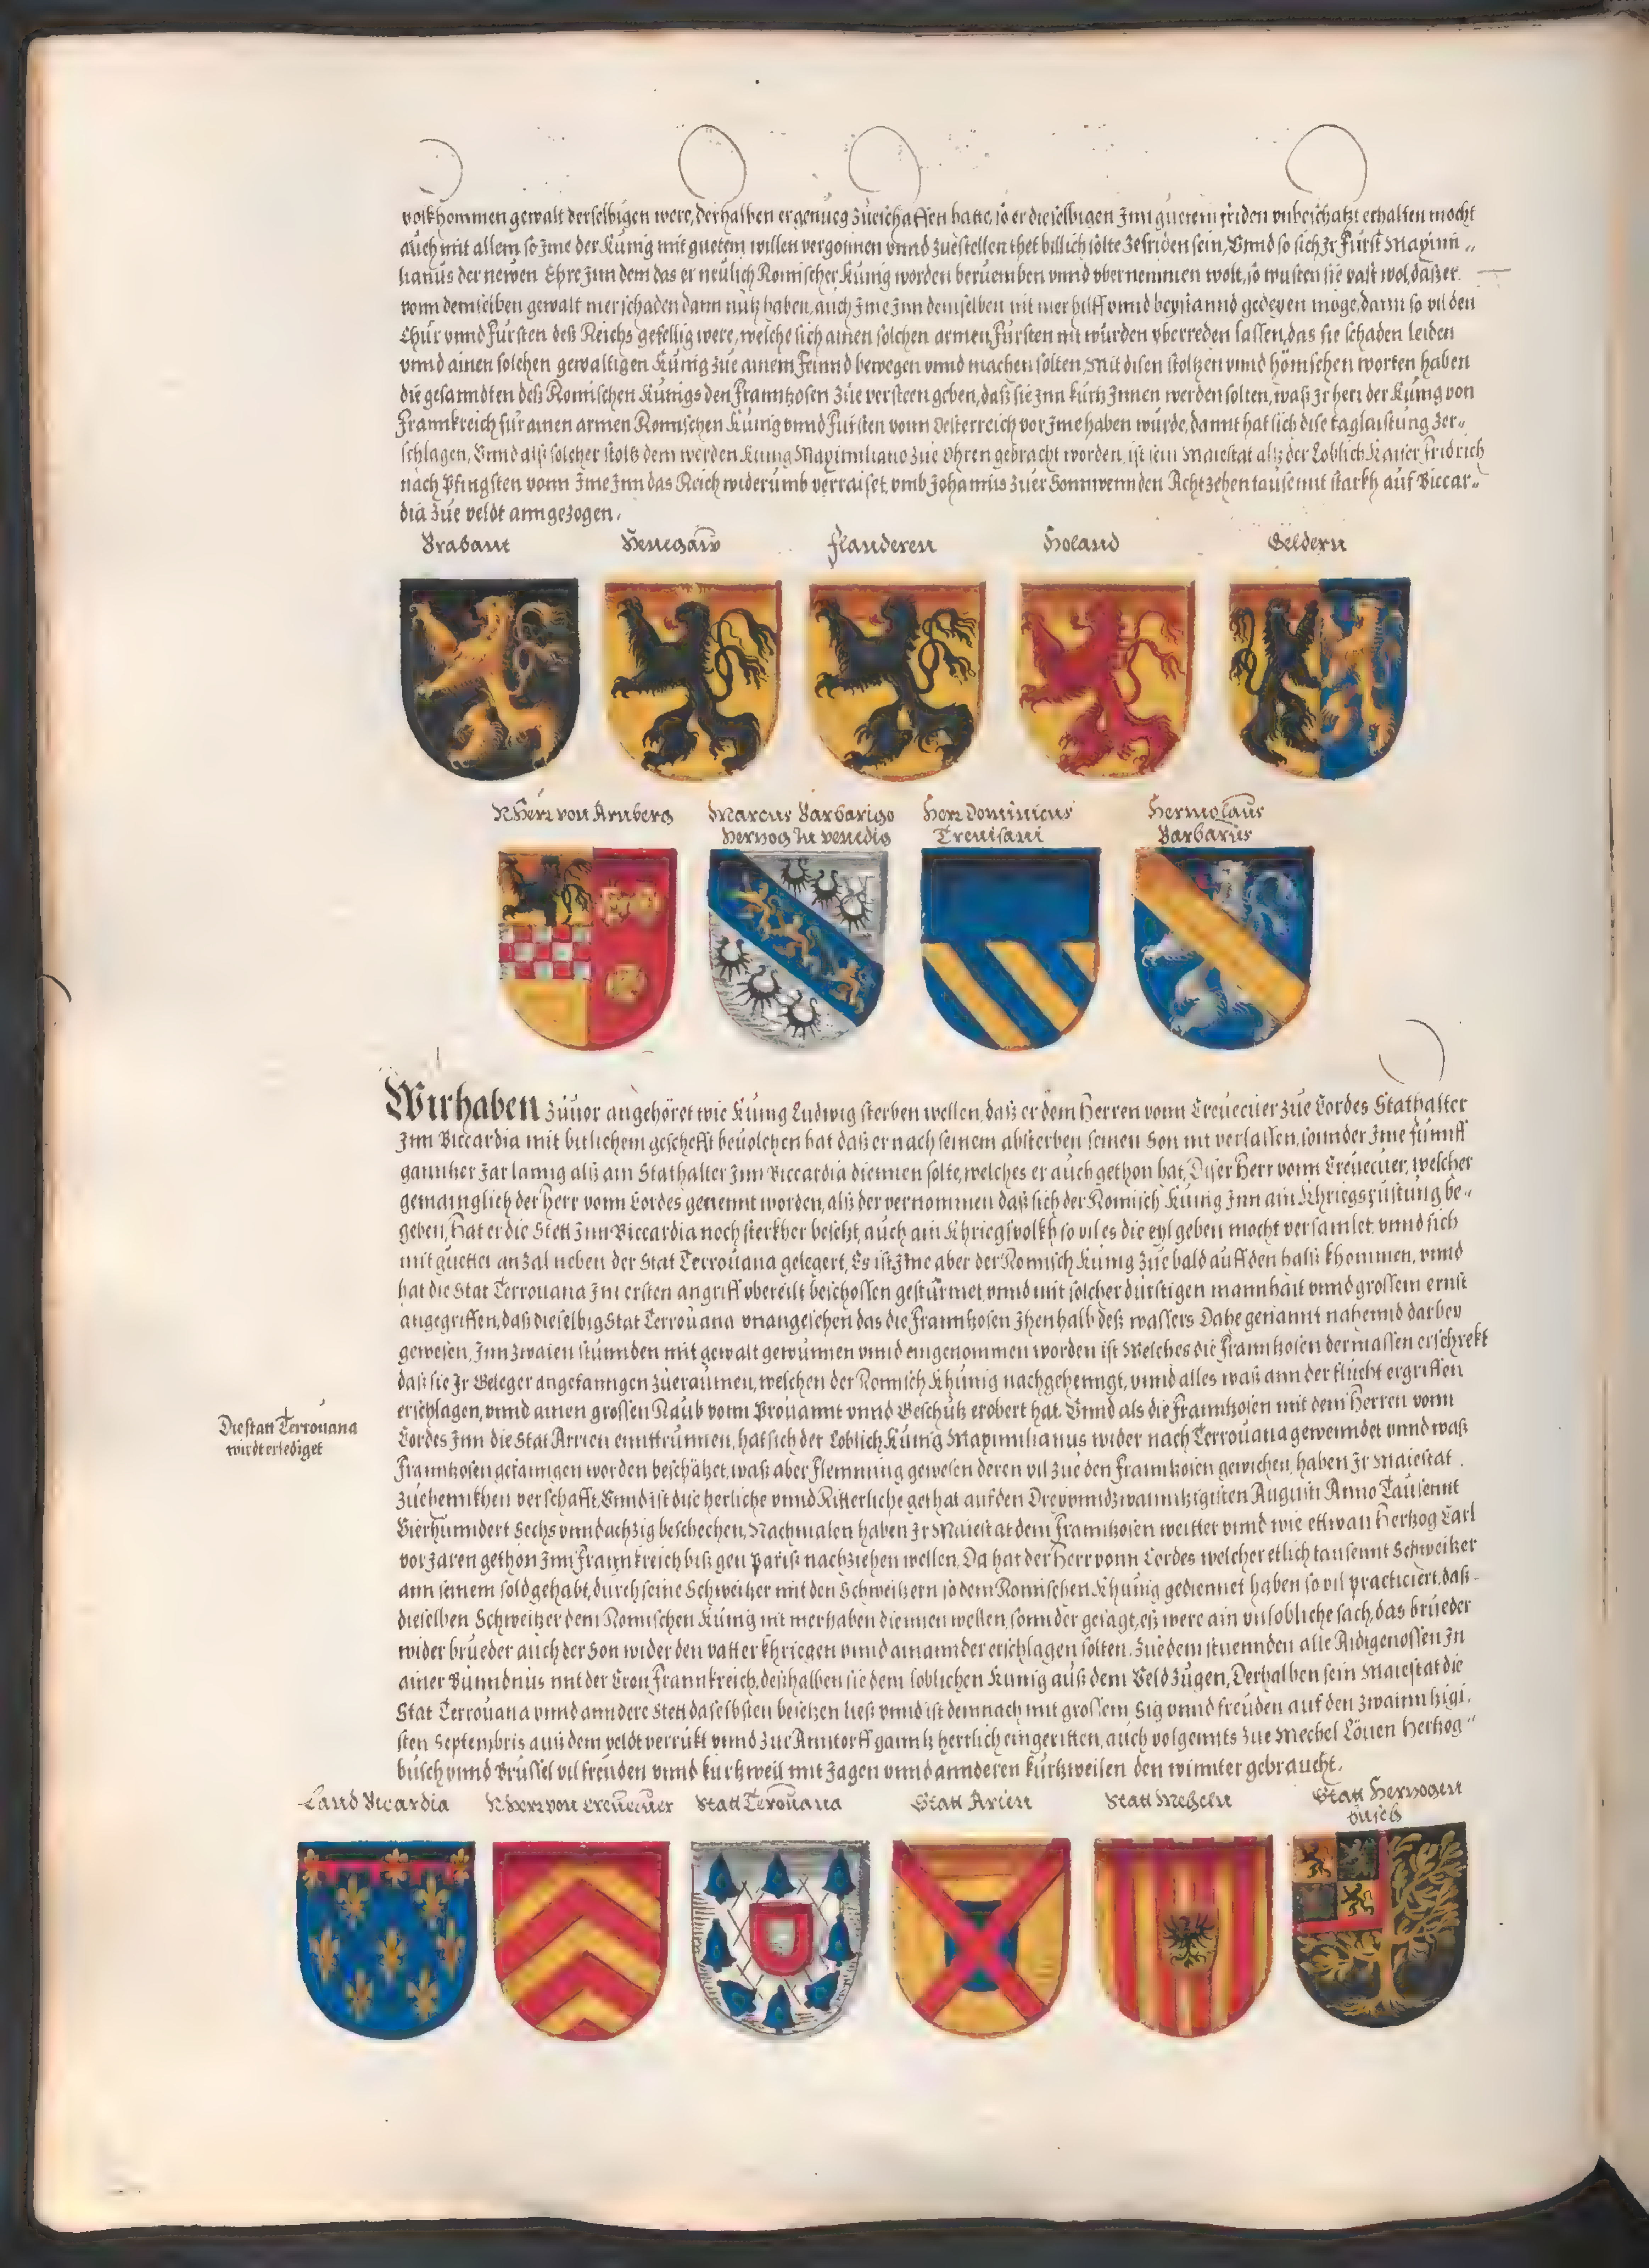 volkhommen gewalt derselbigen were, derhalben er genueg zůeschaffen hatte, so er dieselbigen Jnn guetem friden vnbeschatzt erhalten mocht
auch mit allem so Jme der Kunig mit guetem willen vergonnen vnnd zuestellen thet billich solte zefriden sein, Vnnd so sich Jr Fürst Maximi„
lianus der newen Ehre Jnn dem das er neulich Romischer Kunig worden beruemben vnnd vbernemmen wolt, so wusten sie vast wol, daß er
vonn demselben gewalt mer schaden dann nutz haben, auch Jme Jnn demselben nit mer hilff vnnd beystannd gedeyen möge, dann so vil den
Chur vnnd Fursten deß Reichs gefellig were, welche sich ainen solchen armen Fürsten nit wurden vberreden lassen, das sie schaden leiden
vnnd ainen solchen gewaltigen Kunig zue ainem Feinnd bewegen vnnd machen solten, Mit disen stoltzen vnnd hönischen worten haben
die gesanndten deß Romischen Kunigs den Franntzosen zue versteen geben, daß sie Jnn kurtz Jnnen werden solten, waß Jr herr der Kunig von
Frannkreich für ainen armen Romischen Kunig vnnd Fursten vonn Oesterreich vor Jme haben wurde, damit hat sich dise taglaistung zer„
schlagen, Vnnd alß solcher stoltz dem werden Kunig Maximiliano zue Ohren gebracht worden, ist sein Maiestat alls der Loblich Kaiser Fridrich
nach Pfingsten vonn Jme Jnn das Reich widerumb verraiset, vmb Johannis zuer Sonnwennden Achtzehen tausennt starkh auf Biccar„
dia zue veldt anngezogen,
Brabant Henegaw Flanderen Holand Geldern
N Herr von Arnberg Marcus Barbarigo Herr Dominicus Hermolaus
Hertzog zu venedig Trevisani Barbarus
Wir haben zuuor angehöret wie Kunig Ludwig sterben wellen, daß er dem Herren vonn Creuecuer zue Cordes Stathalter
Jnn Biccardia mit bitlichem geschefft beuolchen hat daß er nach seinem absterben seinen Son nit verlassen, sonnder Jme funnff
ganntzer Jar lanng alß ain Stathalter Jnn Biccardia diennen solte, welches er auch gethon hat, Diser Herr vonn Creuecuer, welcher
gemainglich der Herr vonn Cordes genennt worden, alß der vernommen daß sich der Romisch Kunig Jnn ain Khriegsrüstung be„
geben, Hat er die Stett Jnn Biccardia noch sterkher besetzt, auch ain Khriegsvolkh so vil es die eyl geben mocht versamlet vnnd sich
mit guetter anzal neben der Stat Terrouana gelegert, Es ist Jme aber der Romisch Kunig zue bald auff den halß khommen, vnnd
hat die Stat Terrouana Jm ersten angriff vbereilt beschossen gestürmet, vnnd mit solcher dürstigen mannhait vnnd grossem ernst
angegriffen, daß dieselbig Stat Terrouana vnangesehen das die Franntzosen Jhenhalb deß wassers Dahe genannt nahennd darbey
gewesen, Jnn zwaien stunnden mit gewalt gewunnen vnnd eingenommen worden ist Welches die Franntzosen dermassen erschrekt
daß sie Jr Geleger angefanngen zueraumen, welchen der Romisch Khunig nachgehenngt, vnnd alles waß ann der flucht ergriffen
erschlagen, vnnd ainen grossen Raub vonn Prouannt vnnd Geschutz erobert hat. Vnnd als die Franntzosen mit dem Herren vonn
Die statt Terrouana
wirdt erlediget
Cordes Jnn die Stat Arrien enntrunnen, hat sich der Loblich Kunig Maximilianus wider nach Terrouana gewenndet vnnd waß
Franntzosen gefanngen worden beschätzet, waß aber Flemming gewesen deren vil zue den Franntzosen gewichen, haben Jr Maiestat
zuehennkhen verschafft, Vnnd ist dise herliche vnnd Ritterliche gethat auf den Dreyvnndzwainntzigisten Augusti Anno Tausennt
Vierhunndert Sechs vnndachzig beschechen, Nachmalen haben Jr Maiestat dem Franntzosen weitter vnnd wie ettwan Hertzog Carl
vor Jaren gethon Jnn Frannkreich biß gen Pariß nachziehen wellen, Da hat der Herr vonn Cordes welcher etlich tausennt Schweitzer
ann seinem sold gehabt, durch seine Schweitzer mit den Schweitzern so dem Romischen Khunig gediennet haben so vil practiciert, daß
dieselben Schweitzer dem Romischen Kunig nit mer haben diennen wellen, sonnder gesagt, eß were ain vnlobliche sach, das brueder
wider brueder auch der Son wider den vatter khriegen vnnd ainannder erschlagen solten. Zuedem stuennden alle Aidtgenossen Jn
ainer Bunndnus mit der Cron Frannkreich, deßhalben sie dem loblichen Kunig auß dem Veld zugen, Derhalben sein Maiestat die
Stat Terrouana vnnd anndere Stett daselbsten besetzen ließ vnnd ist demnach mit grossem Sig vnnd freuden auf den zwainntzigi„
sten Septembris auß dem veldt verrukt vnnd zur Anntorff ganntz herrlich eingeritten, auch volgennts zue Mechel Löuen Hertzog„
busch vnnd Brussel vil freuden vnnd kurtzweil mit Jagen vnnd annderen kurtzweilen den winnter gebraucht.
Land Bicardia N Herr von Creuecuer Statt Terouana Statt Arien Statt Mecheln Statt Hertzogen
busch